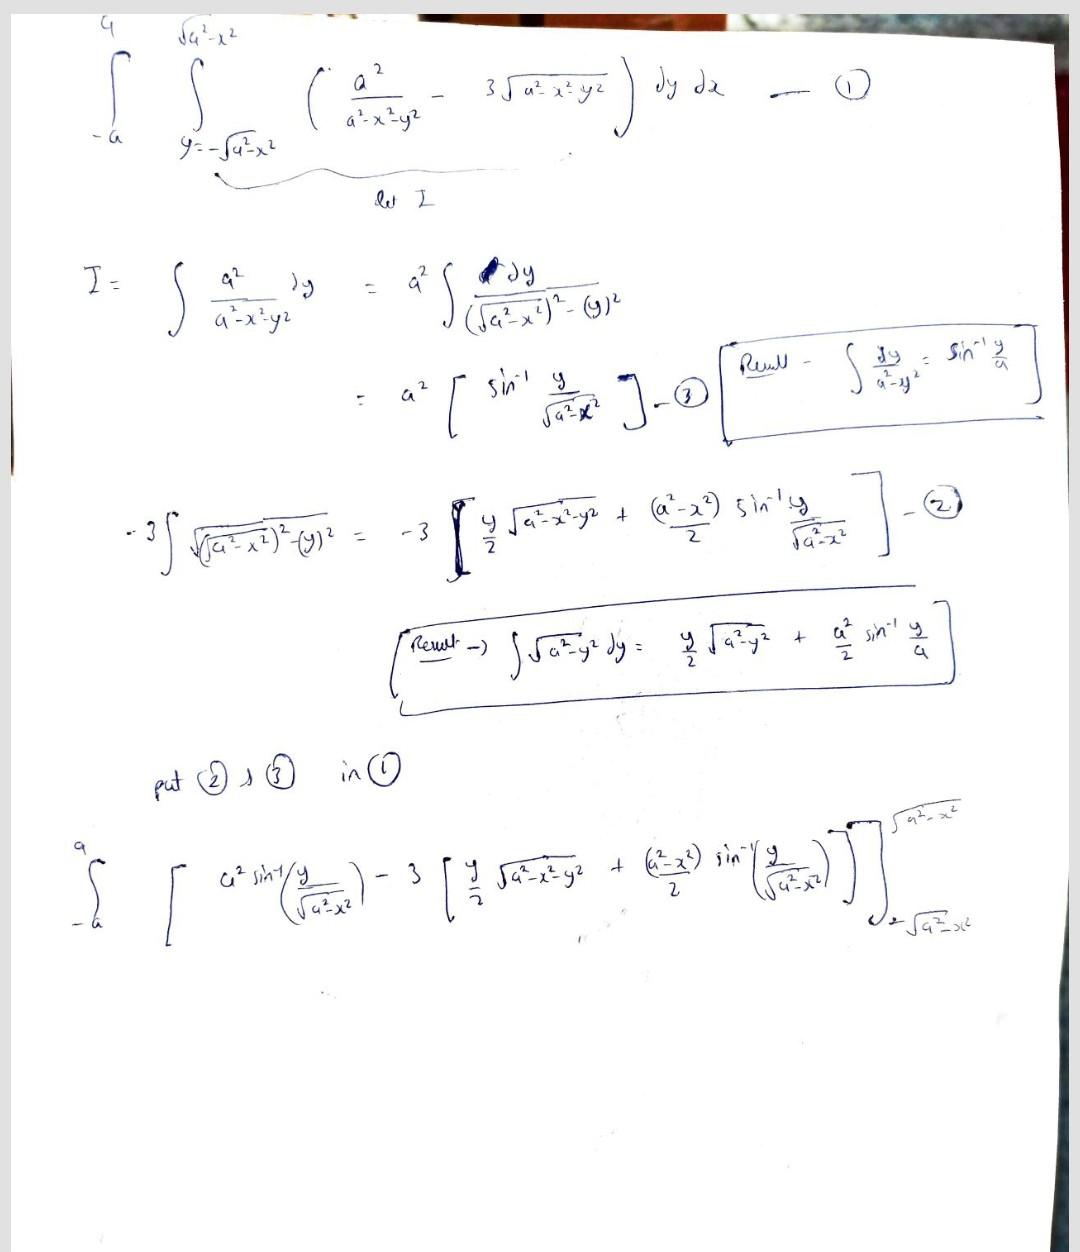 ∫_{-a}^{a} ∫_{y=-√(a²-x²)}^{√(a²-x²)} ( a²/(a²-x²-y²) - 3√(a²-x²-y²) ) dy dx — ①
let I
I = ∫ a²/(a²-x²-y²) dy = a² ∫ dy/((√(a²-x²))² - (y)²)
= a² [ sin⁻¹ y/√(a²-x²) ] - ③
Result - ∫ dy/(a²-y²) = sin⁻¹ y/a
-3 ∫ √((√(a²-x²))² - (y)²) = -3 [ y/2 √(a²-x²-y²) + (a²-x²)/2 sin⁻¹ y/√(a²-x²) ] - ②
Result → ∫ √(a²-y²) dy = y/2 √(a²-y²) + a²/2 sin⁻¹ y/a
put ② & ③ in ①
∫_{-a}^{a} [ a² sin⁻¹(y/√(a²-x²)) - 3 [ y/2 √(a²-x²-y²) + (a²-x²)/2 sin⁻¹(y/√(a²-x²)) ] ]_{-√(a²-x²)}^{√(a²-x²)}